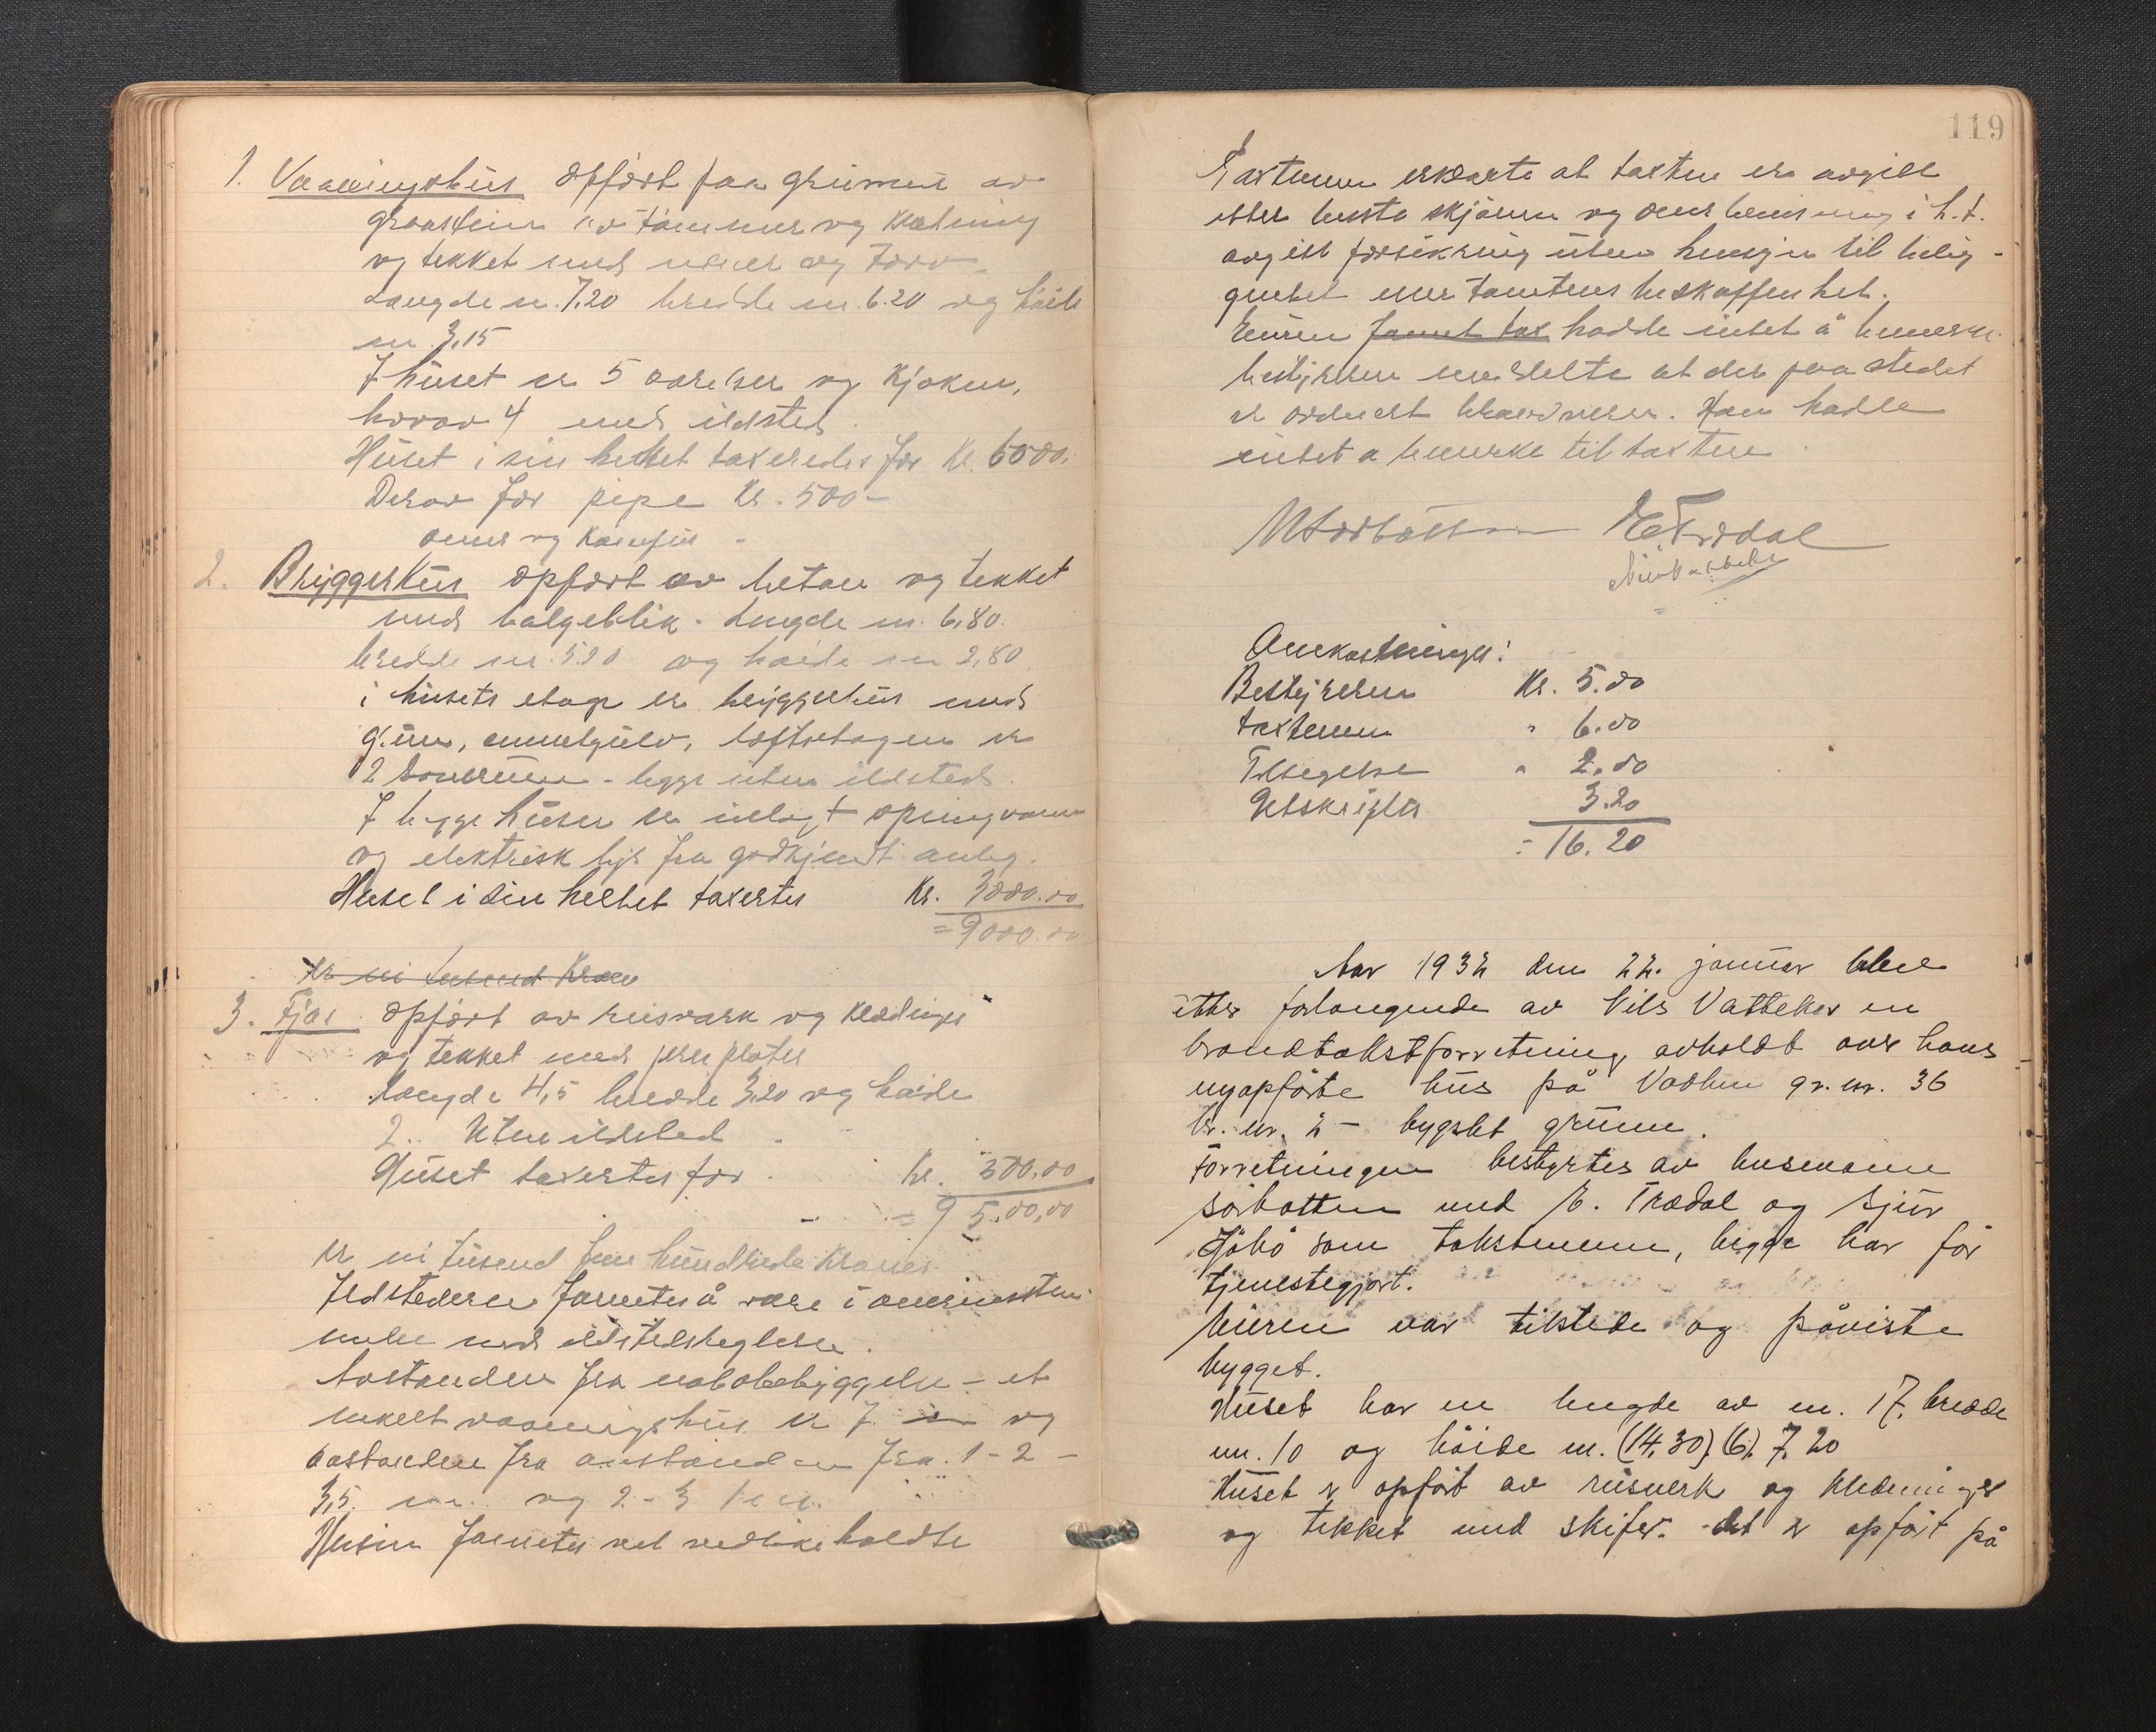 1. Vaaningshus opført paa grunmur av
graastein av tømmer og klædning
og tekket med never og torv.
Længde m. 7.20 bredde m. 6.20 og høide
m. 3,15
I huset er 5 værelser og kjøken,
hvorav 4 med ildsted.
Huset i sin helhet taxeredes for Kr. 6000.
Derav for pipe Kr. 500-
ovner og komfur -
2. Bryggerhus opført av beton og tekket
med bølgeblik. Længde m. 6,80.
bredde m. 5.20 og høide m 2,80.
i husets etage er bryggerhus med
grue, cementgulv, loftsetagen er
2 - begge uten ildsted.
I begge huser er inlagt springvann
og elektrisk lys fra godkjendt anleg.
Huset i sin helhet taxertes Kr. 3000.00
= 9000.00
Kr ni tusend Kroner
3. Fjøs opført av reisverk og klædninger
og tekket med plater
længde 4,5 bredde 3,20 og høide
2.. Uten ildsted.
Huset taxertes for Kr. 500.00
= 9500,00
Kr ni tusend fem hundrede kroner
Ildstederne fantes å være i overensstem-
melse med
Avstanden fra nabobebyggelse - et
enkelt vaaningshus er 7 m og
avstanden fra 1 - 2 -
3,5. m. og 2 - 3
Husene fantes vel vedlikeholdte
119
Taxtmenn erklærte at taxten er avgitt
etter beste skjønn og overbevisning i h.t.
avgitt forsikring uten hensyn til belig-
genhet eller tomtens beskaffenhet.
Eieren fanst tax hadde intet å bemerke.
bestyreren meddelte at der paa stedet
er ordnet brandvesen. Han hadde
intet a bemerke til taxten.
M Sørbotten E Trædal
Omkostninger:
Bestyreren Kr. 5.00
taxtmenn " 6.00
Tilsigelse " 2.00
Utskrifter 3.20
= 16.20
Aar 1932 den 22. januar blev
etter forlangende av Nils Vattekar en
brandtakstforretning avholdt over hans
nyopførte hus på Vadheim gr. nr. 36
br. nr. 2 - bygslet grunn.
Forretningen bestyrtes av lensmann
Sørbotten med E. Trædal og Sjur
som takstmenn, begge har før
tjenestegjort.
Eieren var tilstede og påviste
bygget.
Huset har en lengde av m. 17, bredde
m. 10 og høide m. (14,30) (6). 7,20
Huset er opført av reisverk og kledninger
og tekket med skifer. det er opført på